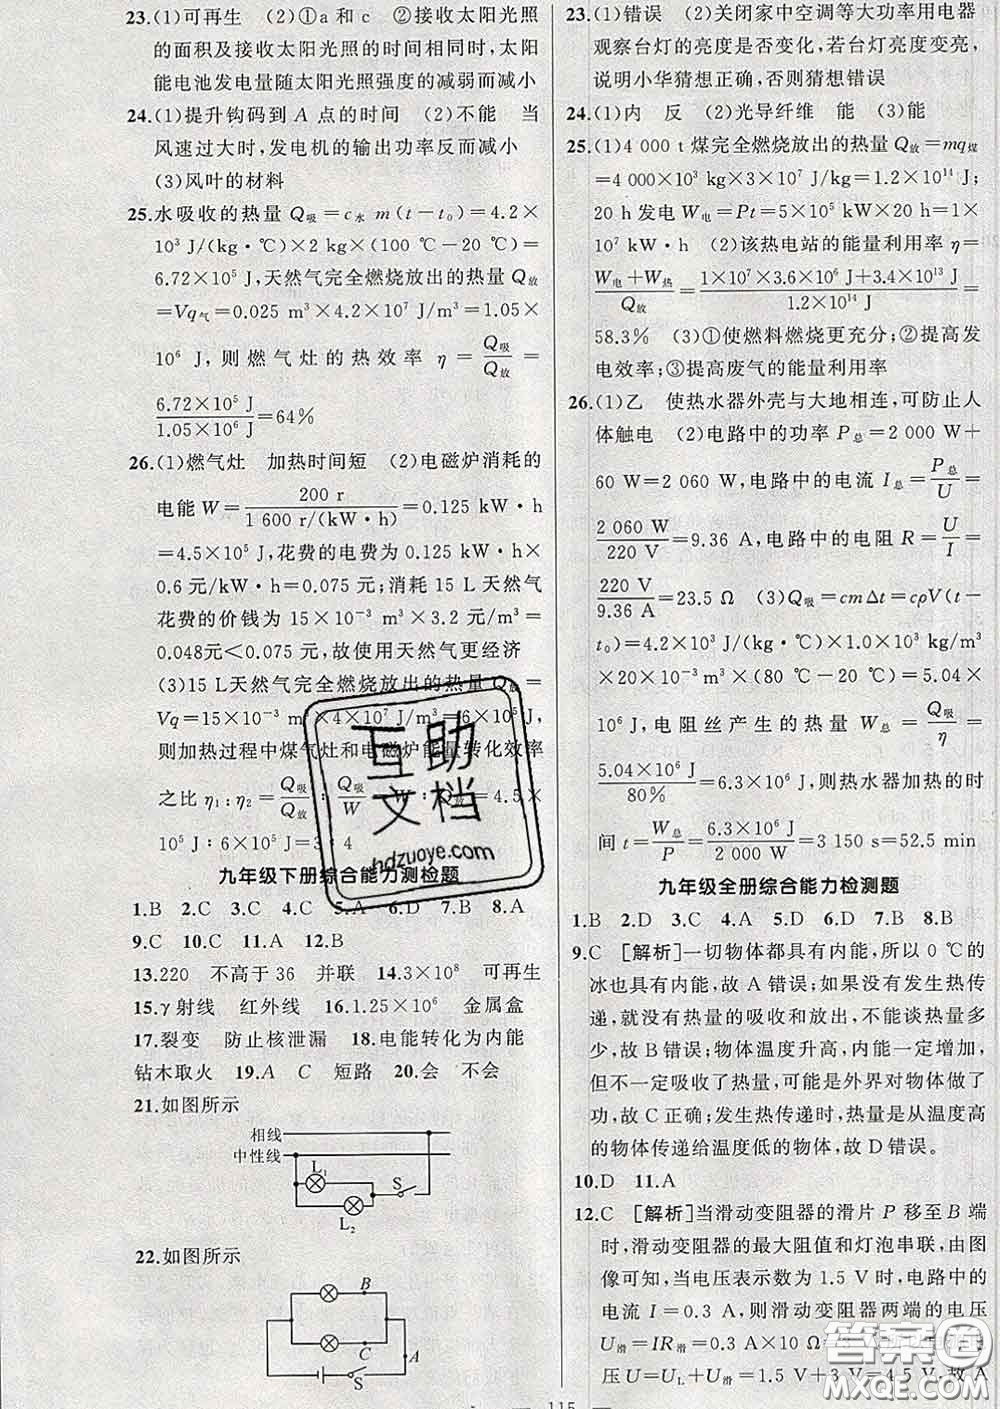 23.(1)可再生 (2)①a和c ②接收太阳光照
的面积及接收太阳光照的时间相同时,太阳
能电池发电量随太阳光照强度的减弱而减小
24.(1)提升钩码到 A 点的时间 (2)不能 当
风速过大时,发电机的输出功率反而减小
(3)风叶的材料
25.水吸收的热量 Q吸=c水 m(t-t₀)=4.2×
10³ J/(kg·℃)×2 kg×(100 ℃-20 ℃)=
6.72×10⁵ J,天然气完全燃烧放出的热量 Q放
=Vq气=0.025 m³×4.2×10⁷ J/m³=1.05×
10⁶ J,则燃气灶的热效率 η=Q吸/Q放=
6.72×10⁵ J/1.05×10⁶ J=64%
26.(1)燃气灶 加热时间短 (2)电磁炉消耗的
电能 W=200 r/1 600 r/(kW·h)=0.125 kW·h
=4.5×10⁵ J,花费的电费为 0.125 kW·h×
0.6 元/kW·h=0.075 元;消耗 15 L 天然气
花费的价钱为 15×10⁻³ m³×3.2 元/m³=
0.048元<0.075 元,故使用天然气更经济
(3)15 L天然气完全燃烧放出的热量 Q放=
Vq=15×10⁻³ m³×4×10⁷ J/m³=6×10⁵ J,
则加热过程中煤气灶和电磁炉能量转化效率
之比 η₁:η₂=Q吸/Q放:Q吸/W=W:Q放=4.5×
10⁵ J:6×10⁵ J=3:4
九年级下册综合能力测检题
1.B 2.C 3.C 4.C 5.A 6.D 7.B 8.A
9.C 10.C 11.A 12.B
13.220 不高于 36 并联 14.3×10⁸ 可再生
15.γ射线 红外线 16.1.25×10⁶ 金属盒
17.裂变 防止核泄漏 18.电能转化为内能
钻木取火 19.A C 短路 20.会 不会
21.如图所示
相线
中性线
L₁
S
L₂
22.如图所示
B
C
A
S
23.(1)错误 (2)关闭家中空调等大功率用电器
观察台灯的亮度是否变化,若台灯亮度变亮,
说明小华猜想正确,否则猜想错误
24.(1)内 反 (2)光导纤维 能 (3)能
25.(1)4 000 t 煤完全燃烧放出的热量 Q放=mq煤
=4 000×10³ kg×3×10⁷ J/kg=1.2×10¹⁴ J;
20 h 发电 W电=Pt=5×10⁵ kW×20 h=1×
10⁷ kW·h (2)该热电站的能量利用率 η=
W电+W热/Q放=1×10⁷×3.6×10⁶ J+3.4×10¹³ J/1.2×10¹⁴ J=
58.3% (3)①使燃料燃烧更充分;②提高发
电效率;③提高废气的能量利用率
26.(1)乙 使热水器外壳与大地相连,可防止人
体触电 (2)电路中的功率 P总=2 000 W+
60 W=2 060 W,电路中的电流 I总=P总/U=
2 060 W/220 V=9.36 A,电路中的电阻 R=U/I=
220 V/9.36 A=23.5 Ω (3)Q吸=cmΔt=cρV(t-
t₀)=4.2×10³ J/(kg·℃)×1.0×10³ kg/m³
×20×10⁻³m³×(80 ℃-20 ℃)=5.04×
10⁶ J,电阻丝产生的热量 W总=Q吸/η=
5.04×10⁶ J/80%=6.3×10⁶ J,则热水器加热的时
间 t=W总/P=6.3×10⁶ J/2 000 W=3 150 s=52.5 min
九年级全册综合能力检测题
1.B 2.D 3.C 4.A 5.D 6.D 7.B 8.B
9.C [解析]一切物体都具有内能,所以 0 ℃的
冰也具有内能,故 A 错误;如果没有发生热传
递,就没有热量的吸收和放出,不能谈热量多
少,故 B 错误;物体温度升高,内能一定增加,
但不一定吸收了热量,可能是外界对物体做了
功,故 C 正确;发生热传递时,热量是从温度高
的物体传递给温度低的物体,故 D 错误。
10.D 11.A
12.C [解析]当滑动变阻器的滑片 P 移至 B 端
时,滑动变阻器的最大阻值和灯泡串联,由图
像可知,当电压表示数为 1.5 V 时,电路中的
电流 I=0.3 A,则滑动变阻器两端的电压
U滑=IR滑=0.3 A×10 Ω
压 U=UL+U滑=1.5 V+3 V=4.5 V,故 A
115
互助
文档
hdzuoye.com
答案圈
MXQE.COM